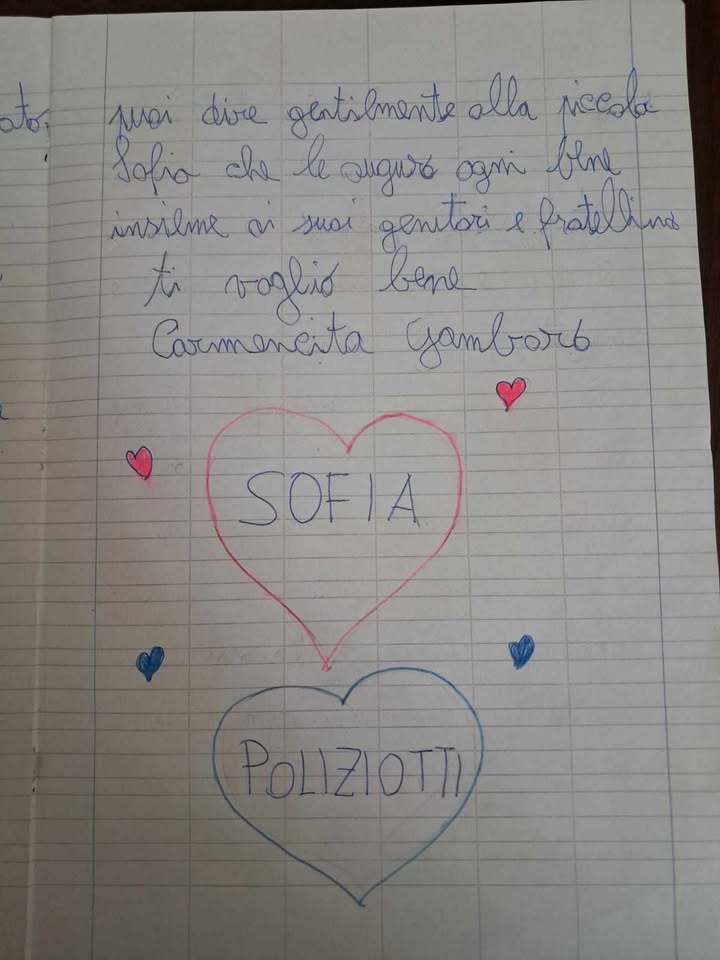 ato
puoi dire gentilmente alla piccola
Sofia che le auguro ogni bene
insieme ai suoi genitori e fratellino
ti voglio bene
Carmencita Gamboro
SOFIA
POLIZIOTTI